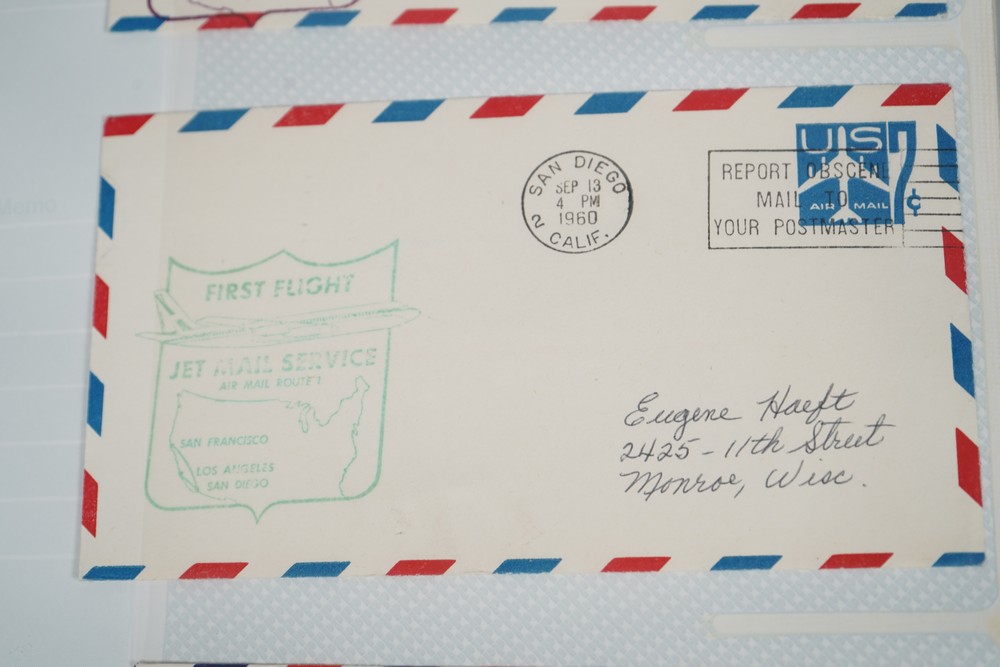 SAN DIEGO
SEP 13
4 PM
1960
2 CALIF.
REPORT OBSCENE
MAIL TO
YOUR POSTMASTER
US 7¢
AIR MAIL
FIRST FLIGHT
JET MAIL SERVICE
AIR MAIL ROUTE 1
SAN FRANCISCO
LOS ANGELES
SAN DIEGO
Eugene Haeft
2425 - 11th Street
Monroe, Wisc.